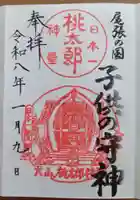 尾張の国
子供の守神
日本一
桃太郎
神璽
奉拝
令和八年一月九日
犬山
桃太郎